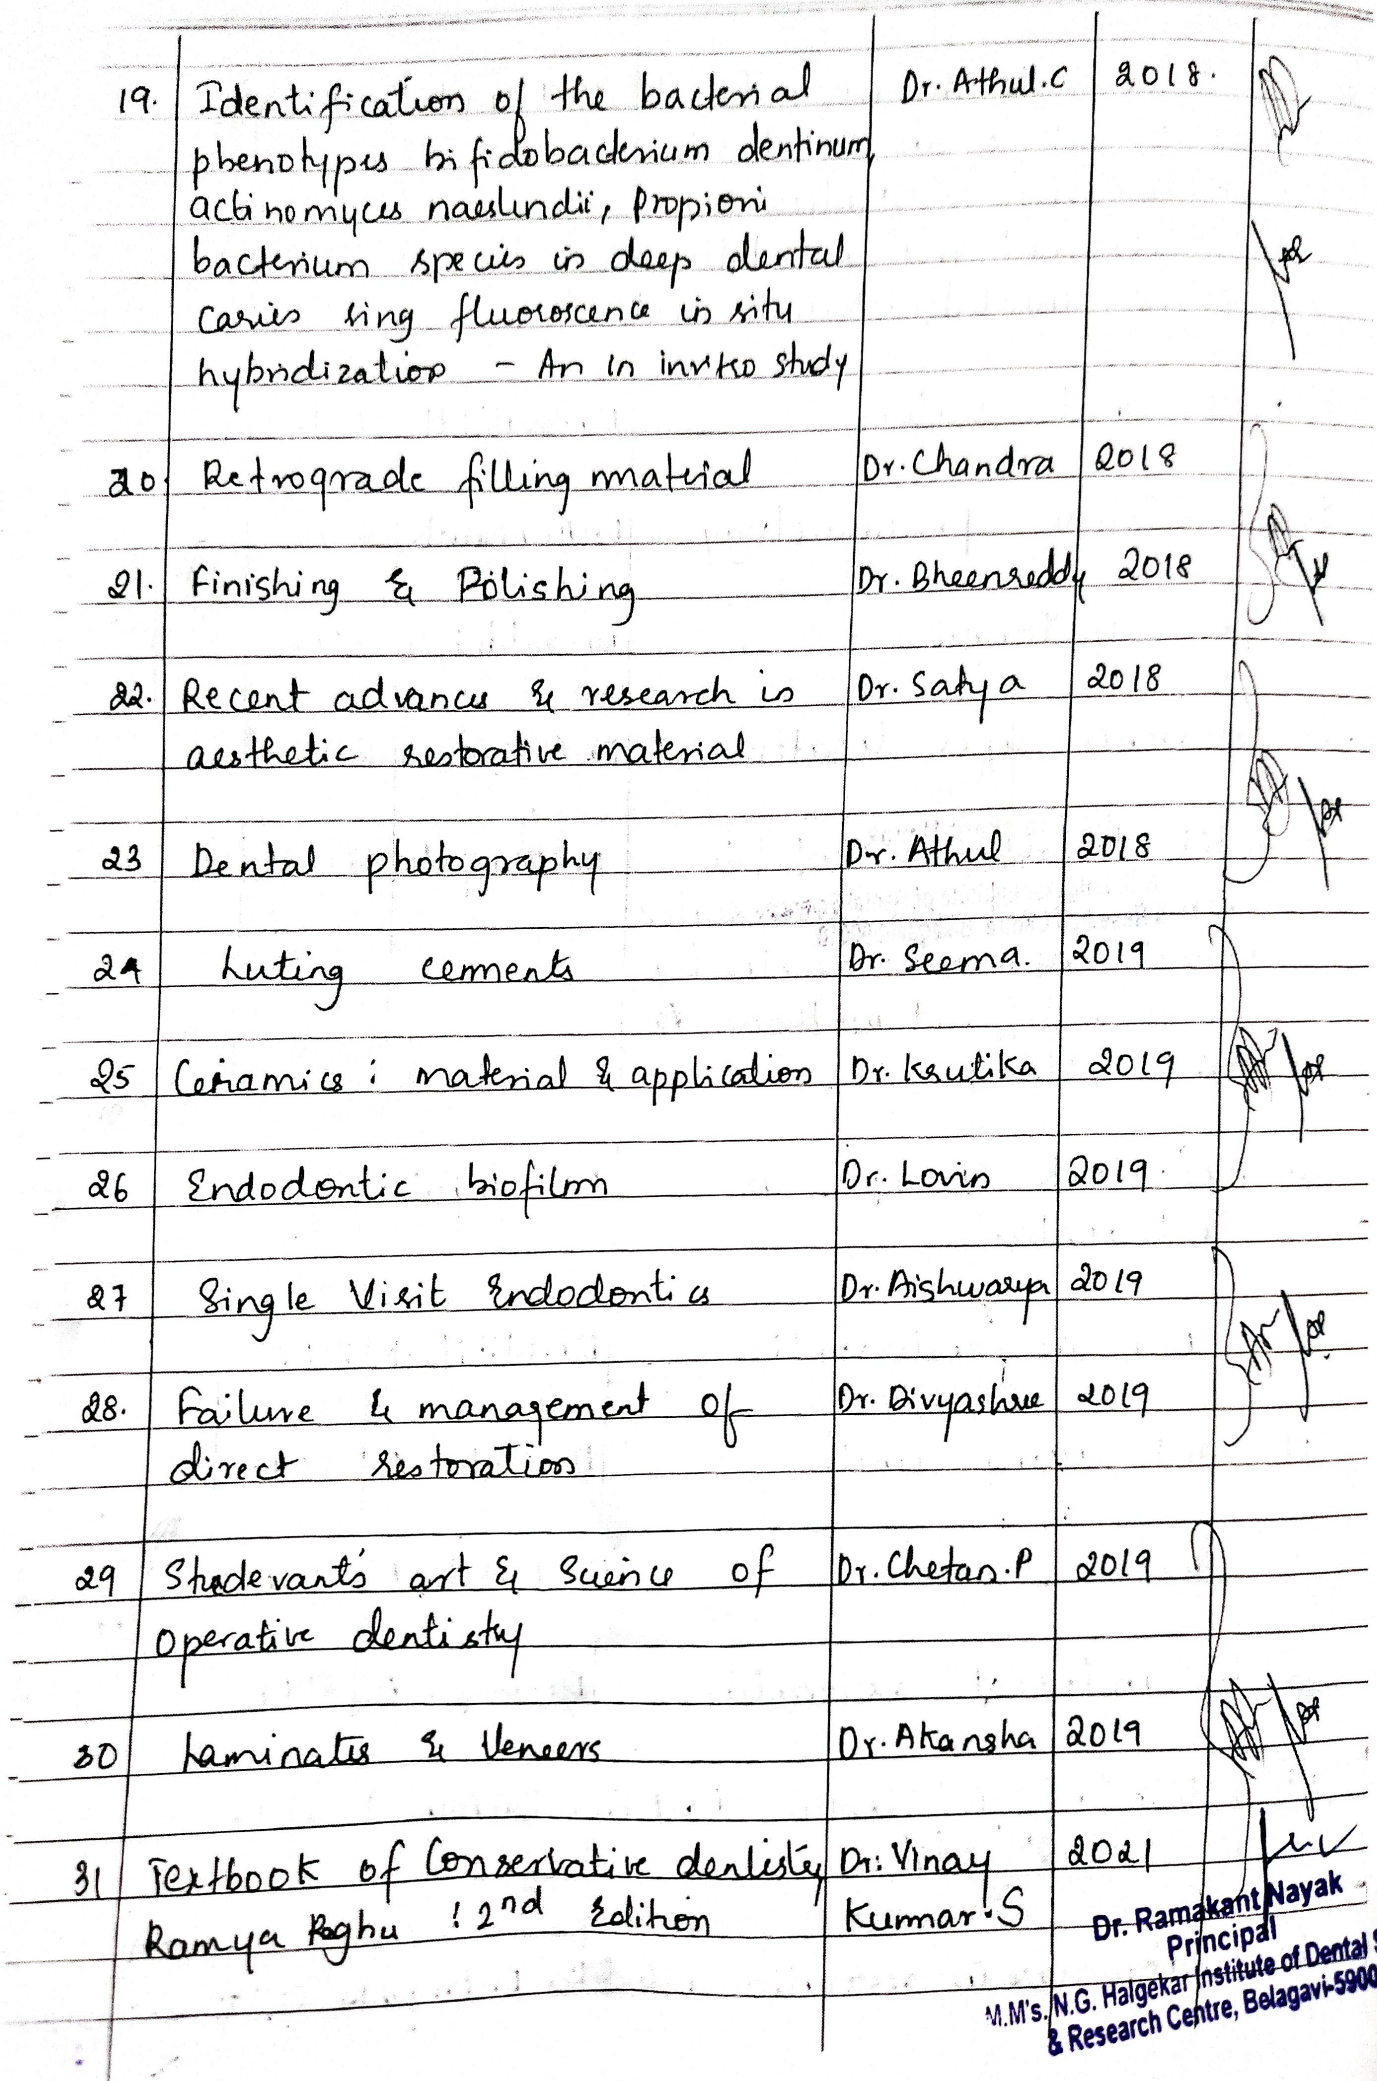 19. Identification of the bacterial Dr. Athul.C 2018.
phenotypes bifidobacterium dentinum,
actinomyces naeslundii, Propioni
bacterium species in deep dental
caries sing fluoroscence in situ
hybridization - An in invitro study
20. Retrograde filling material Dr. Chandra 2018
21. Finishing & Polishing Dr. Bheenreddy 2018
22. Recent advances & research in Dr. Satya 2018
aesthetic restorative material
23 Dental photography Dr. Athul 2018
24 Luting cements Dr. Seema. 2019
25 Ceramics : material & application Dr. Krutika 2019
26 Endodontic biofilm Dr. Lovin 2019
27 Single Visit Endodontics Dr. Aishwarya 2019
28. Failure & management of Dr. Divyashree 2019
direct restoration
29 Studevant's art & Science of Dr. Chetan.P 2019
operative dentistry
30 Laminates & Veneers Dr. Akansha 2019
31 Textbook of Conservative dentistry Dr. Vinay 2021
Ramya Raghu : 2nd Edition Kumar.S
Dr. Ramakant Nayak
Principal
M.M's. N.G. Halgekar Institute of Dental S
& Research Centre, Belagavi-5900